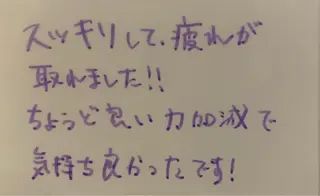 スッキリして、疲れが
取れました!!
ちょうど良い力加減で
気持ち良かったです!